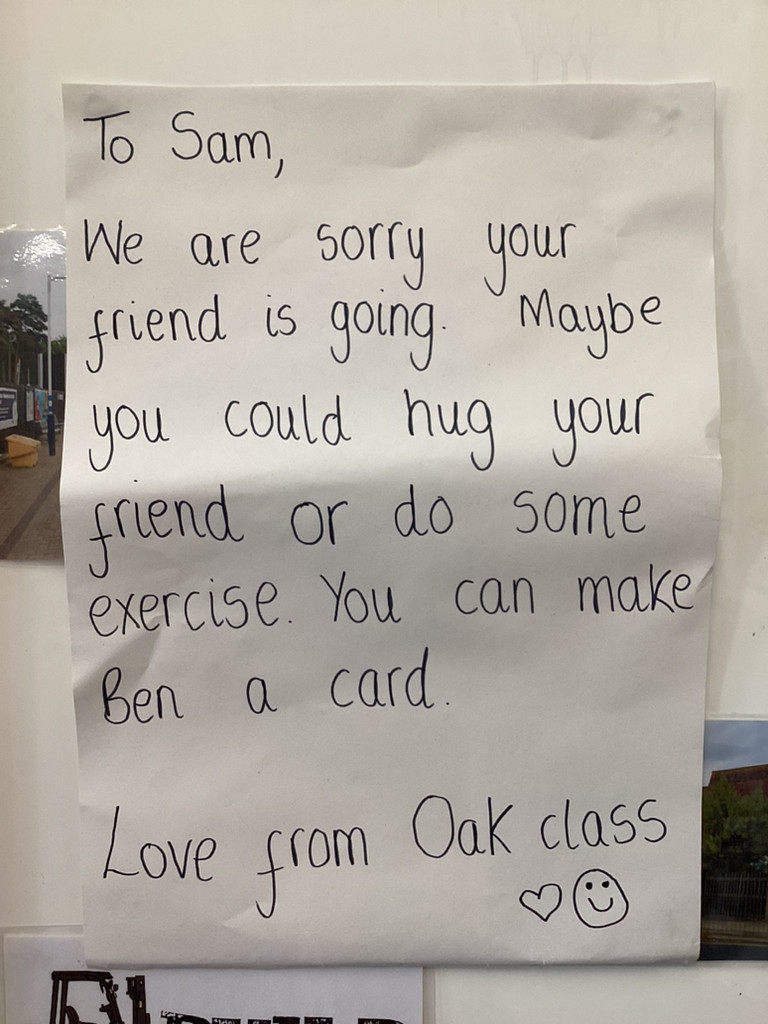 To Sam,
We are sorry your
friend is going. Maybe
you could hug your
friend or do some
exercise. You can make
Ben a card.
Love from Oak class